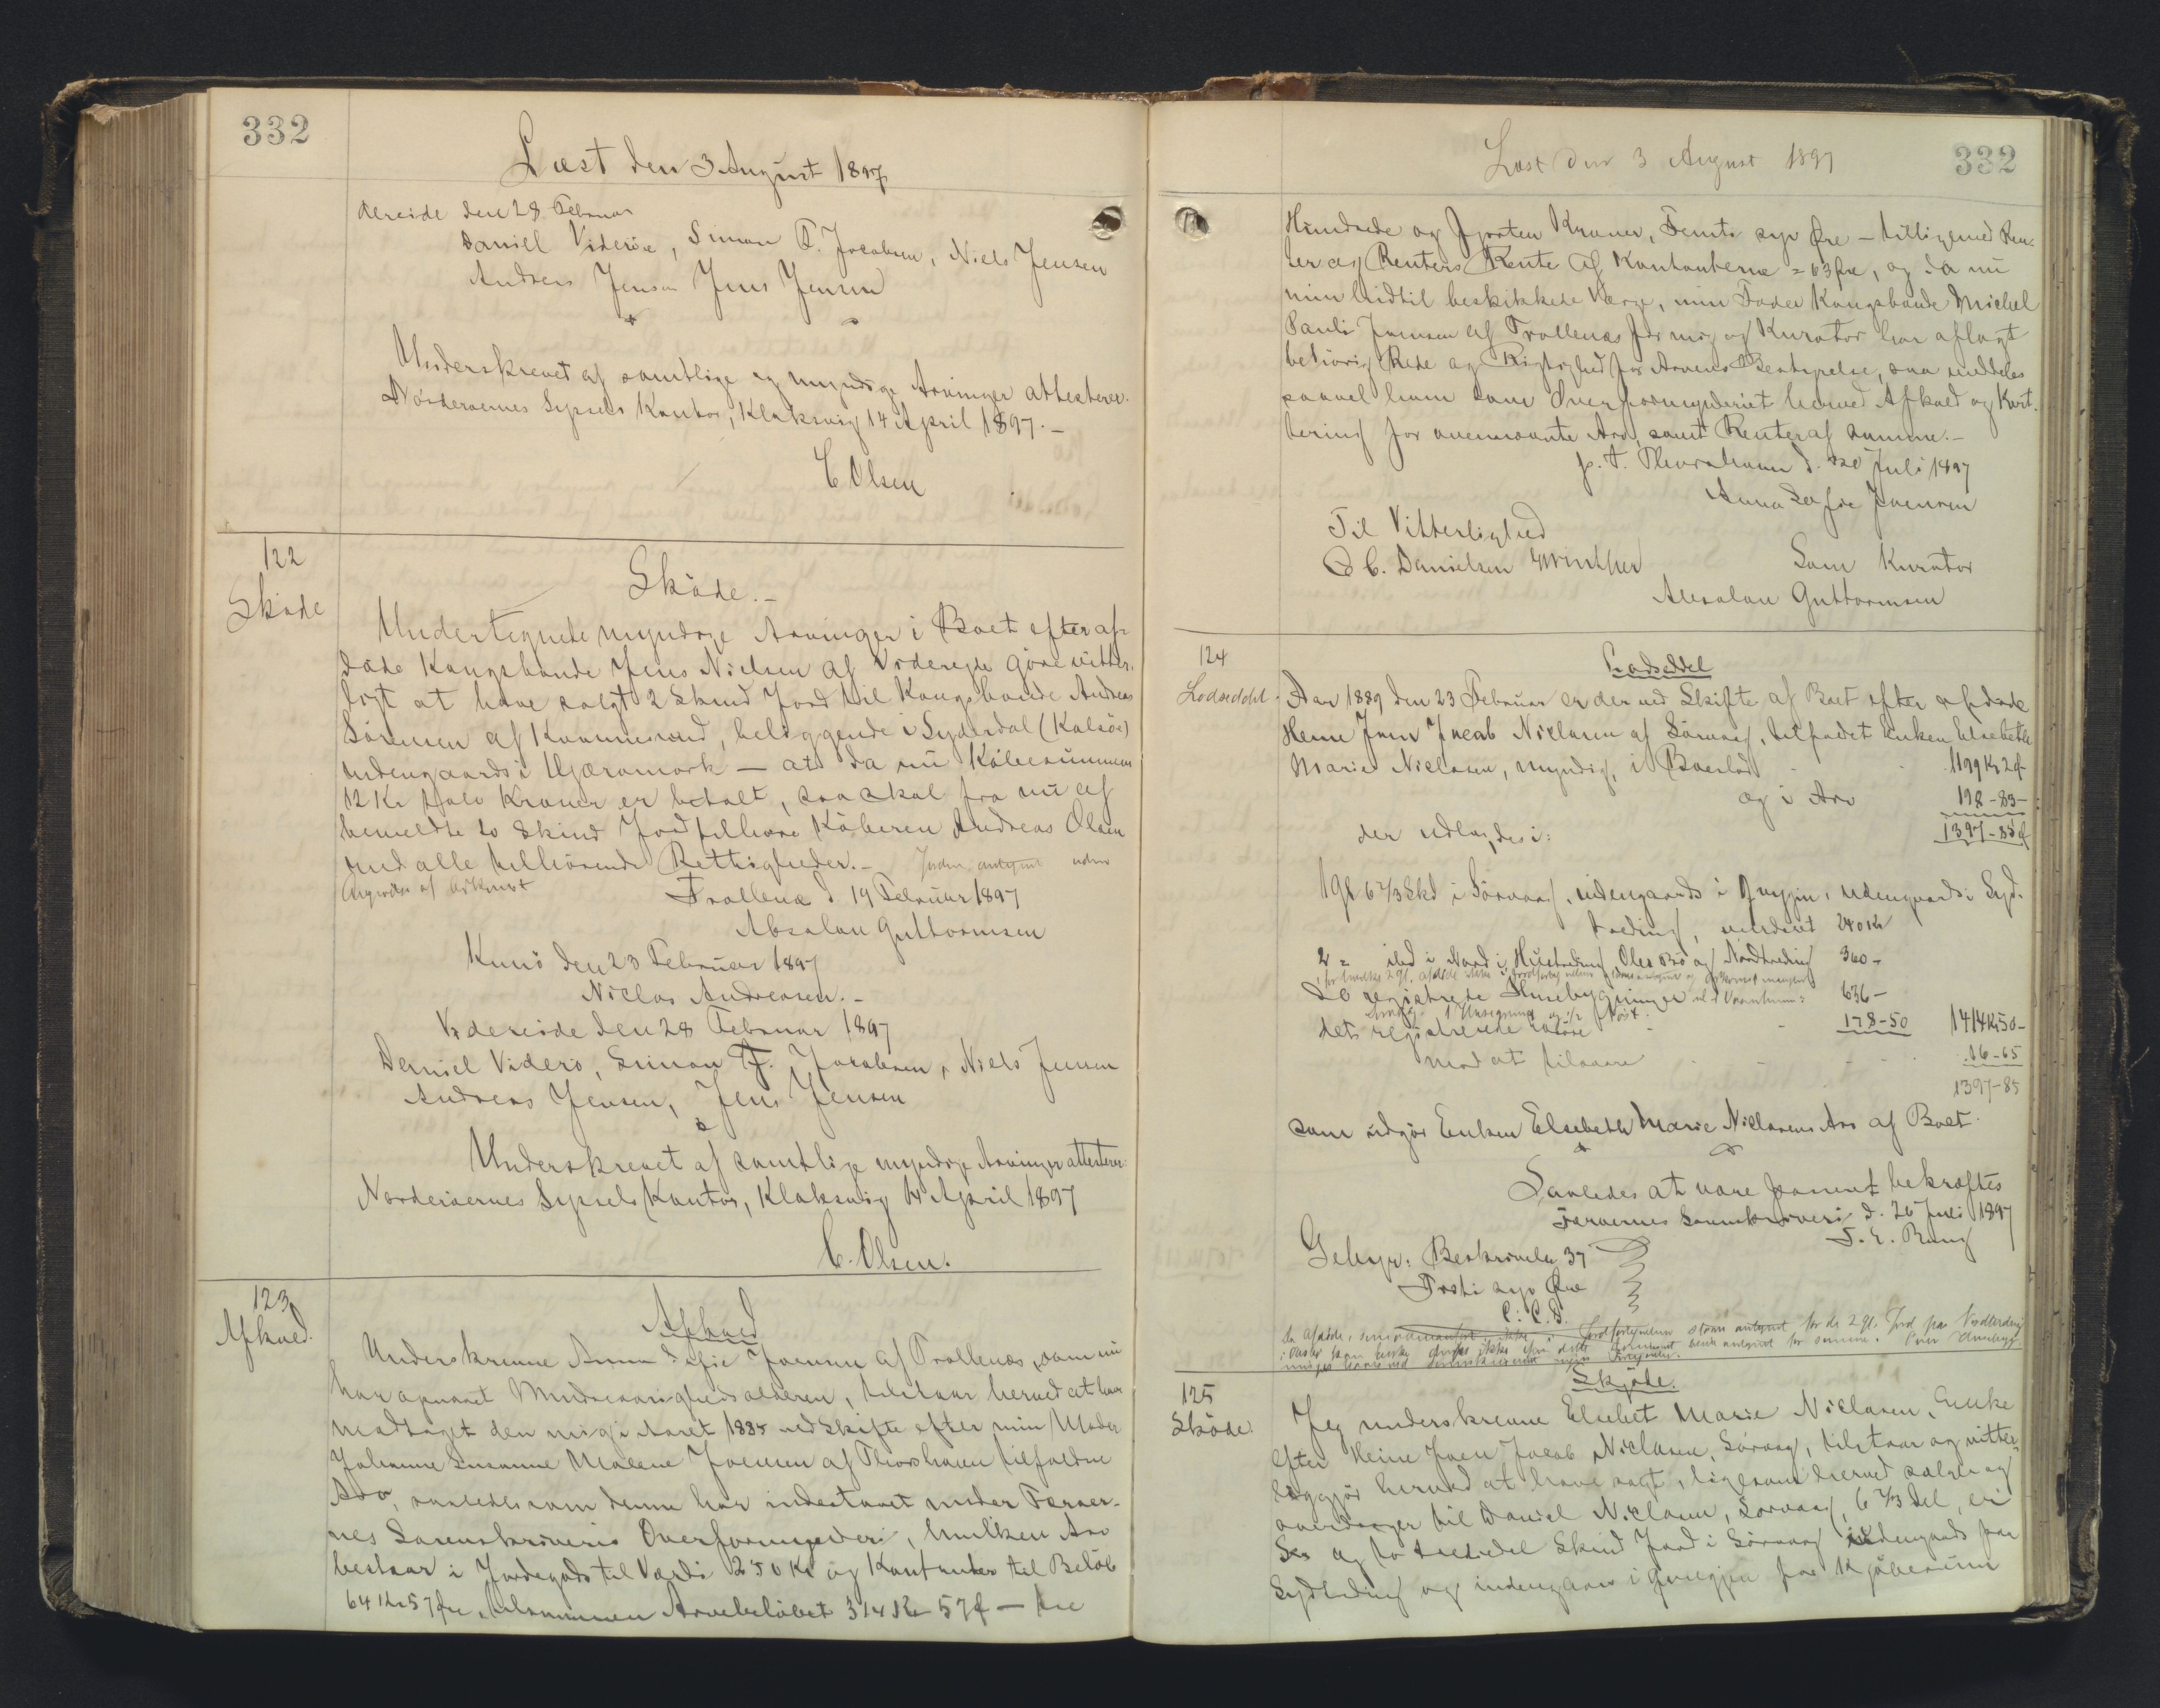 332
Læst den 3 August 1897
dereide den 28 Februar
Daniel Viderøe, Simon F. Jacobsen, Niels Jensen
Andreas Jensen Jens Jensen
Underskrevet af samtlige og myndige Arvinger attesterer.
Nørderøernes Syssels Kontor, Klaksvig 14 April 1897.—
C Olsen
122
Sköde
Sköde.—
Undertegnede myndige Arvinger i Boet efter af-
døde Kongsbonde Jens Nielsen af Videreide gøre vitter-
ligt at have solgt 2 Skind Jord til Kongsbonde Andreas
Sörensen af , beliggende i Syderdal (Kalsöe)
udengaards i — at da nu Købesummen
12 Kr tolv Kroner er betalt, saa skal fra nu af
bemeldte to Skind Jord tilhøre Køberen Andreas Olsen
med alle tilhørende Rettigheder.— Jorden antegnet uden
Angivelse af Adkomst
Trollenæs d 19 Februar 1897
Absalon Guttormsen
Kunö den 23 Februar 1897
Niclas Andreasen.—
Videreide den 28 Februar 1897
Daniel Viderö, Simon F. Jacobsen, Niels Jensen
Andreas Jensen, Jens Jensen
Underskrevet af samtlige myndige Arvinger attesterer:
Norderøernes Syssels Kontor, Klaksvig 14 April 1897
C. Olsen.
123
Afkald.
Afkald
Underskrevne Anna Sofie Joensen af Trollenæs, som nu
har opnaaet Myndighedsalderen, tilstaar herved at have
modtaget den mig i Aaret 1885 ved Skifte efter min Moder
Johanne Susanne Malene Joensen af Thorshavn tilfaldne
Arv, saaledes som denne har indestaaet under Færøer-
nes Sorenskriveris Overformynderi, hvilken Arv
bestaar i Jordegods til Værdi 250 Kr og Kontanter til Beløb
64 Kr 57 Øre, tilsammen Arvebeløbet 314 Kr 57 Ø — tre
Læst den 3 August 1897
332
Hundrede og Fjorten Kroner, Femti syv Øre — tilligemed Ren-
ter og Renters Rente af Kontanterne = 63 Øre, og da nu
min hidtil beskikkede Værge, min Fader Kongsbonde Michel
Pauli Joensen af Trollenæs for mig og Kurator har aflagt
behørig Rede og Rigtighed for Arvens Bestyrelse, saa meddeles
saavel ham som Overformynderiet herved Afkald og Kvit-
tering for ovennævnte Arv, samt Renter af samme.—
p. t. Thorshavn d. 20 Juli 1897
Anna Sofie Joensen
Til Vitterlighed
C. Danielsen Winther
Som Kurator
Absalon Guttormsen
124
Lodseddel
Lodseddel
Aar 1889 den 23 Februar er der ved Skifte af Boet efter afdøde
Heine Joen Jacob Niclasen af Sørvaag, tilfaldet Enken Elsebeth
Marie Niclasen, myndig, i Boeslod 1199 Kr 2 Ø
og i Arv 198 - 83 -
der udlægges i: 1397 - 85 Ø
19 Gl 6 2/3 Skd i Sørvaag, indengaards i , udengaards i Syd-
treding, vurderet 240 Kr
2 = ibd i Nord i Húsatreding, Oles Bø og Nordtreding 360 -
De registrerede Husebygninger 636 -
dets registrerede Løsøre 178 - 50 1414 Kr 50 -
mod at tilsvare 16 - 65
1397 - 85
som udgør Enken Elsebeth Marie Niclasens Arv af Boet.
Saaledes at være passeret bekræftes
Færøernes Sorenskriveri d. 26 Juli 1897
F. E. Bang
Gebyr: Beskrivelse 37
Treti syv Øre
C. C. D.
125
Sköde.
Skjøde.
Jeg underskrevne Elsebet Marie Niclasen, Enke
efter Heine Joen Jacob Niclasen, Sørvaag, tilstaar og vitter-
liggjør herved at have solgt, ligesom herved sælger og
overdrager til Daniel Niclasen, Sørvaag, 6 2/3 Del, er:
Sex og to trediedel Skind Jord i Sørvaag udengaards paa
Sydtreding og indengaards i for Kjøbesum